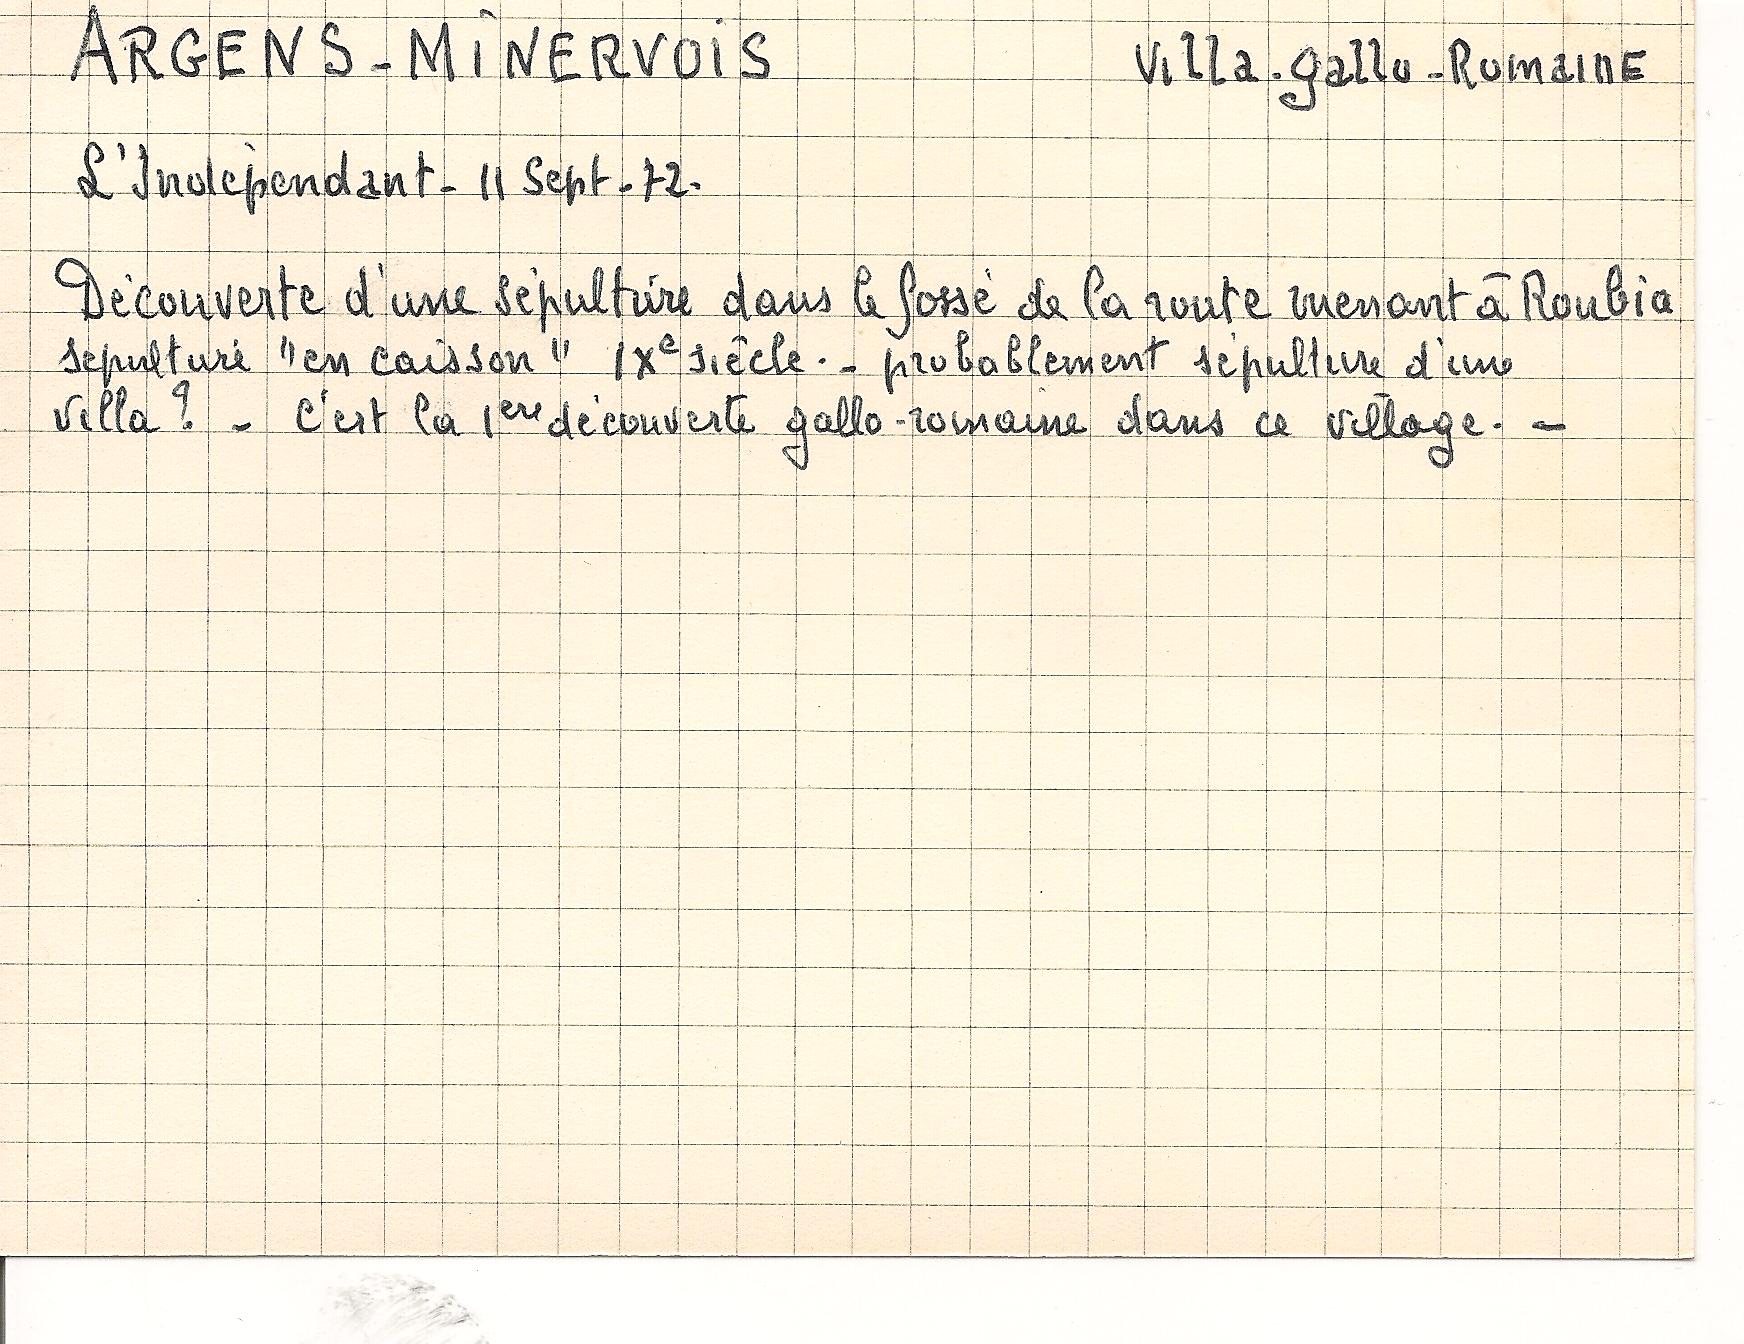 ARGENS-MINERVOIS Villa-gallo-Romaine
L'Indépendant - 11 Sept - 72.
Découverte d'une sépulture dans le fossé de la route menant à Roubia
sépulture "en caisson" IXe siècle. - probablement sépulture d'une
villa ? - C'est la 1ere découverte gallo-romaine dans ce village. -